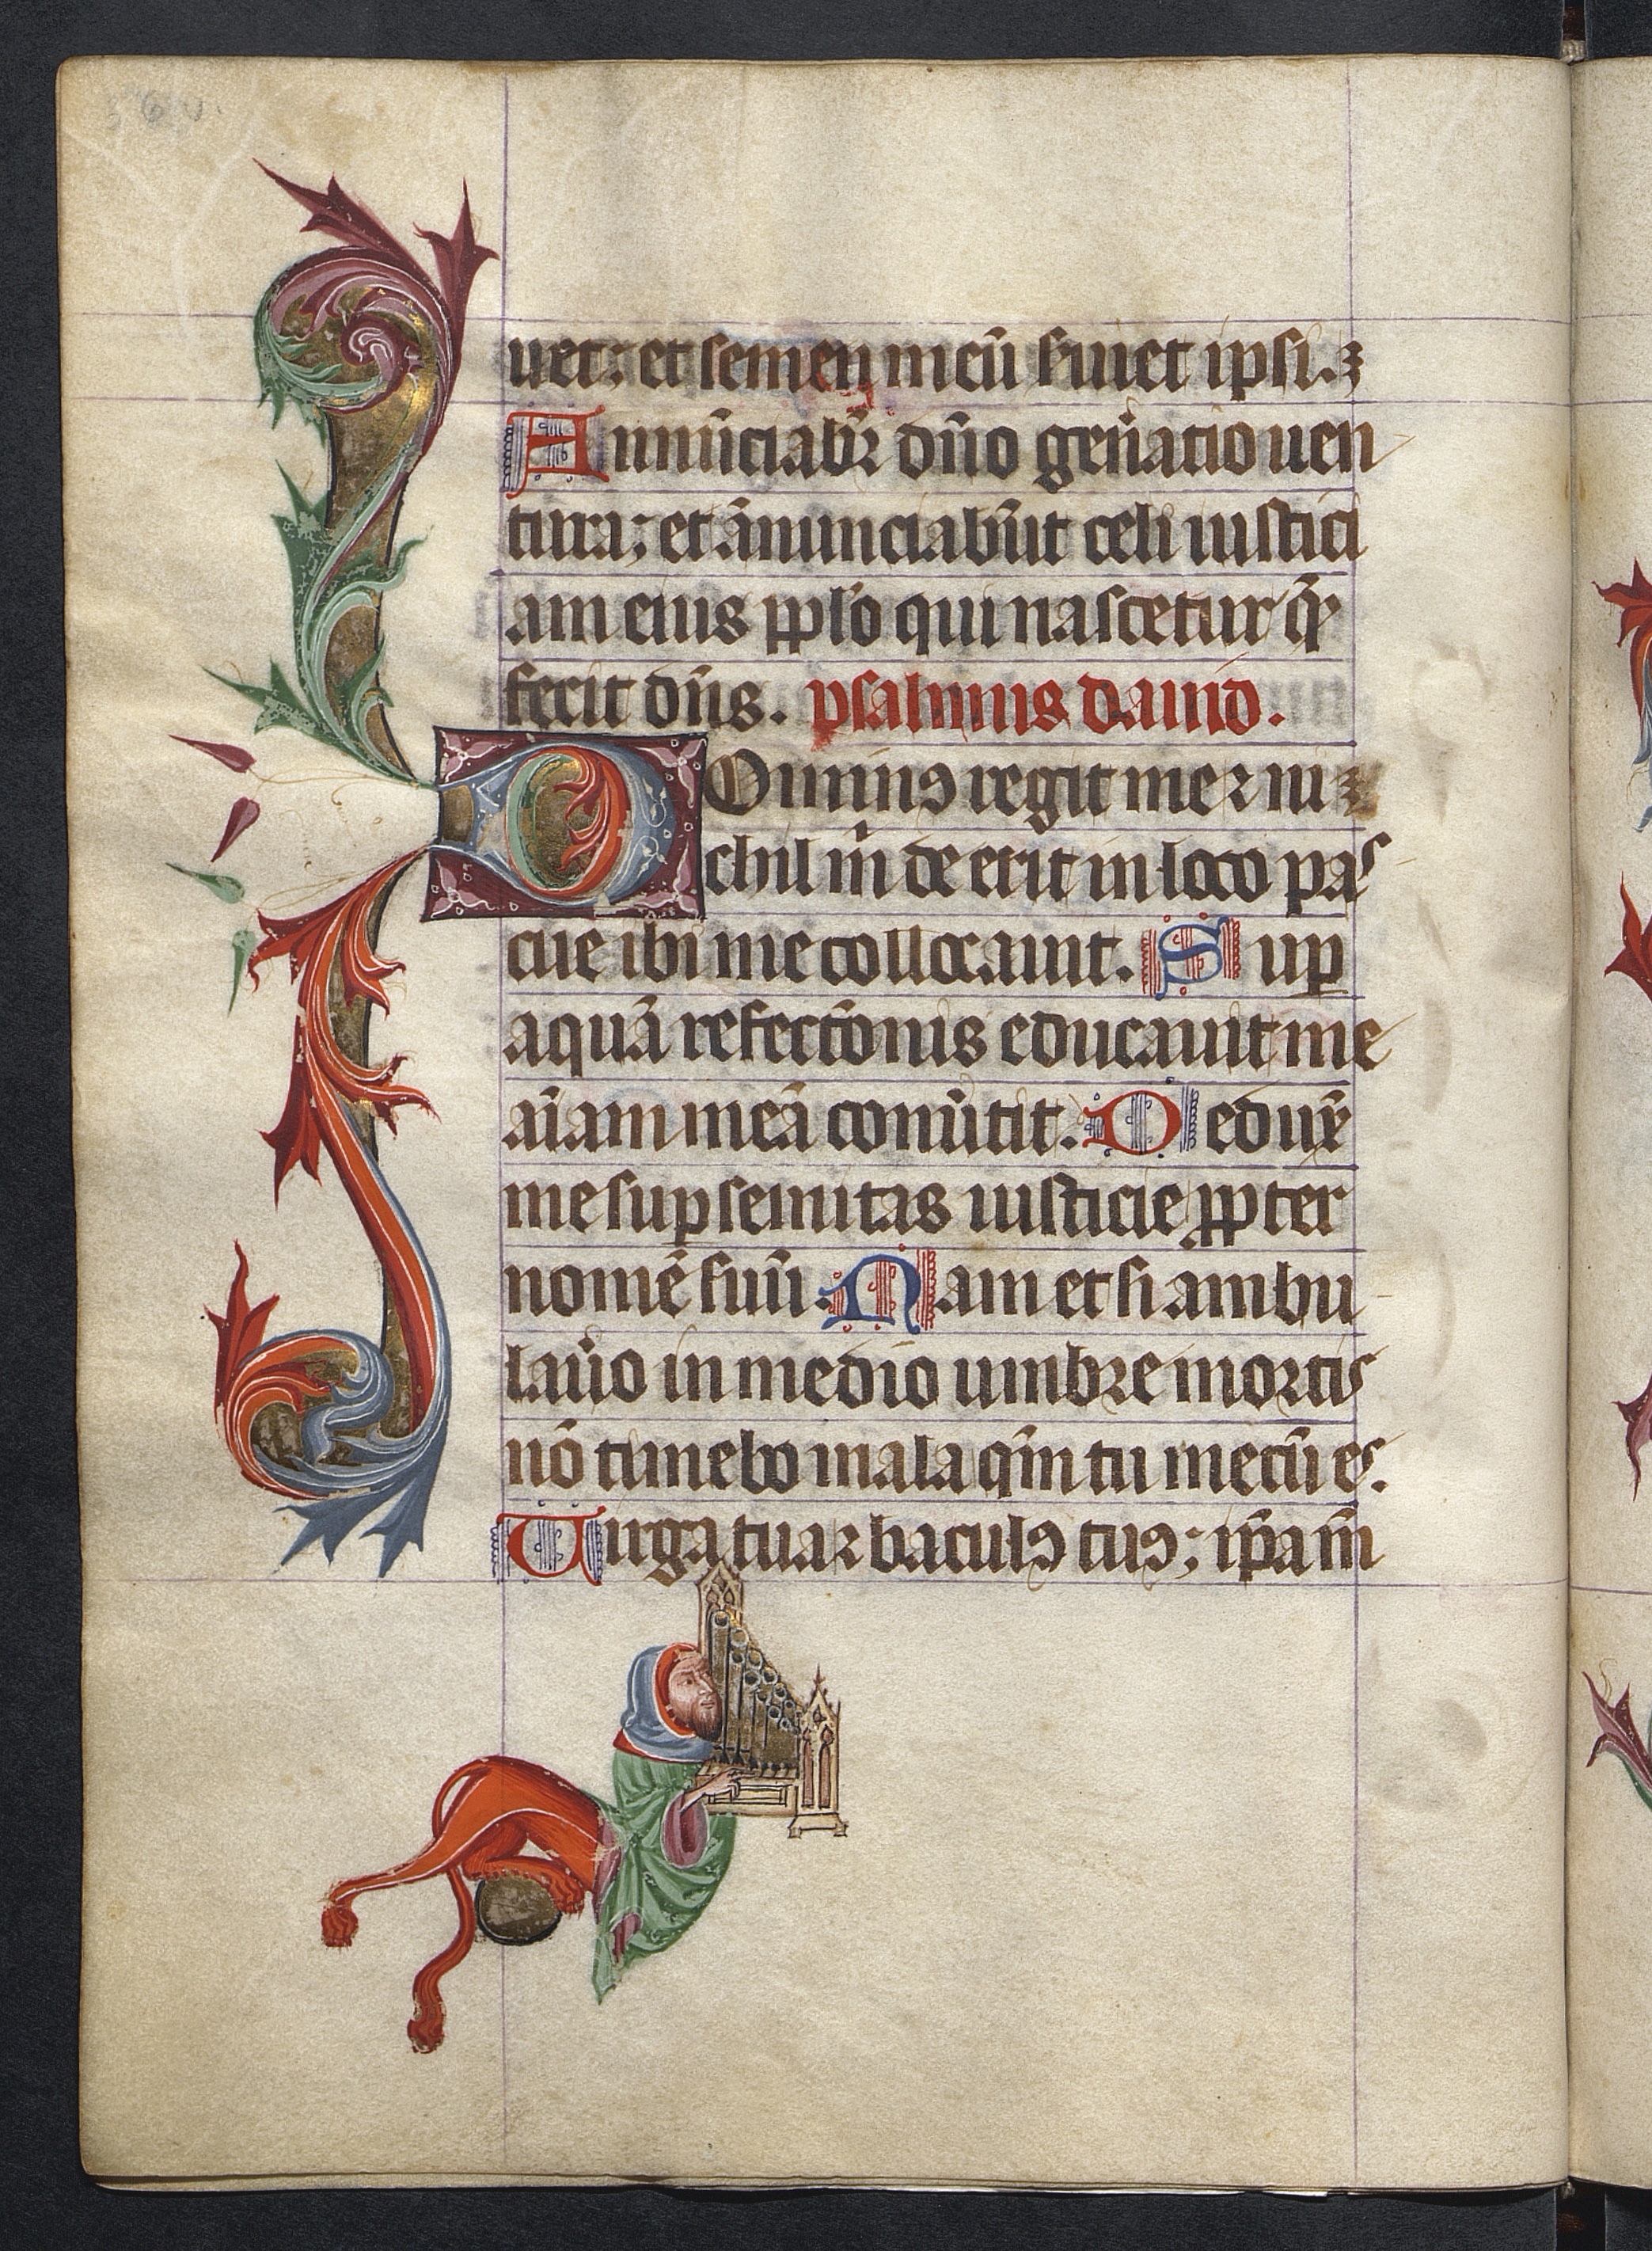 36v.
uet: et semen meū ẜuiet ipsi.
Annūciabr̄ dn̄o gen̄atio uen
tura; et ānunciabūt celi iustici
am eius pplo qui nascetur q̄
fecit dn̄s. psalmus dauid.
Dominꝯ regit me ⁊ ni
chil m̄ de erit in loco pas
cue ibi me collocauit. Suꝑ
aquā refectōnis educauit me
aīam meā conūtit. Deduxͥ
me suꝑ semitas iusticie ꝓpter
nomē suū. Nam et si ambu
laūo in medio umbre mortis
nō timebo mala qm̄ tu mecū es.
Uirga tua ⁊ baculꝯ tuꝯ; ip̄a m̄